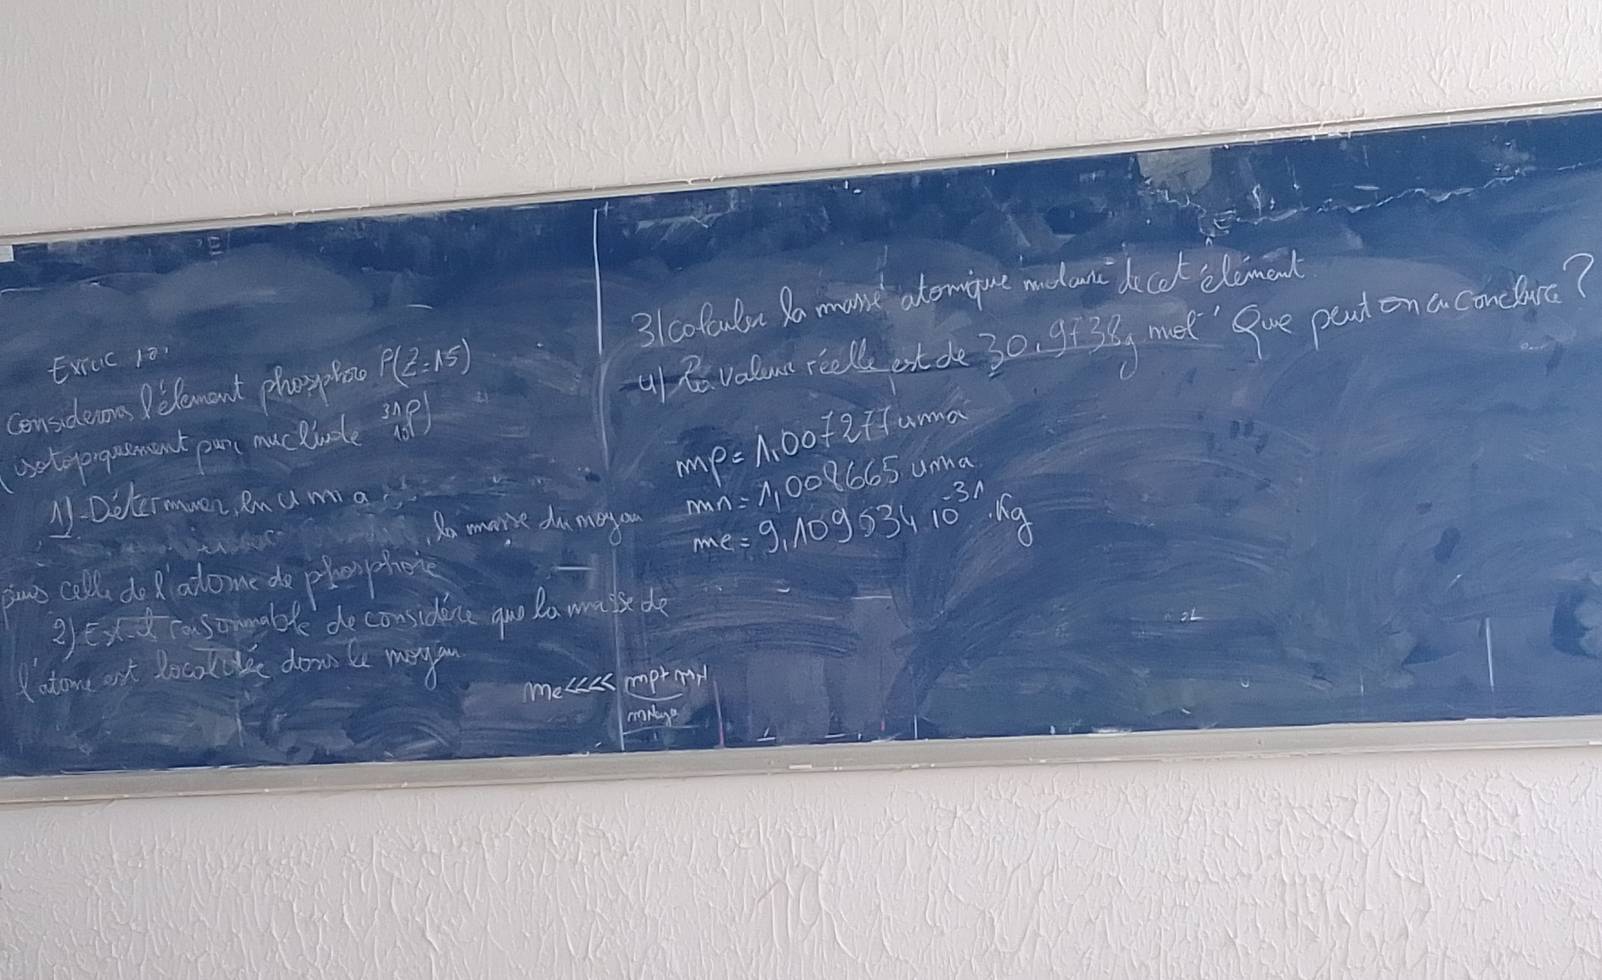 Exruc 10.
Considerons l'élement phosphore P(Z=15)
(isotopiquement pur, nucliude ³¹₁₅P)
1)-Déterminer, en u m a
, la masse du noyau
puis celle de l'atome de phosphore
2) Est-il raisonnable de considére que la masse de
l'atome est localisée dans le noyau
me <<<< mp + mN
mNoya
3/ calculer la masse atomique molaire de cet élément.
4/ La valeur réelle est de 30,9738g mol⁻¹ Que peut on en conclure ?
mp = 1,007277 uma
mn = 1,008665 uma
me = 9,109534 10⁻³¹ .Kg